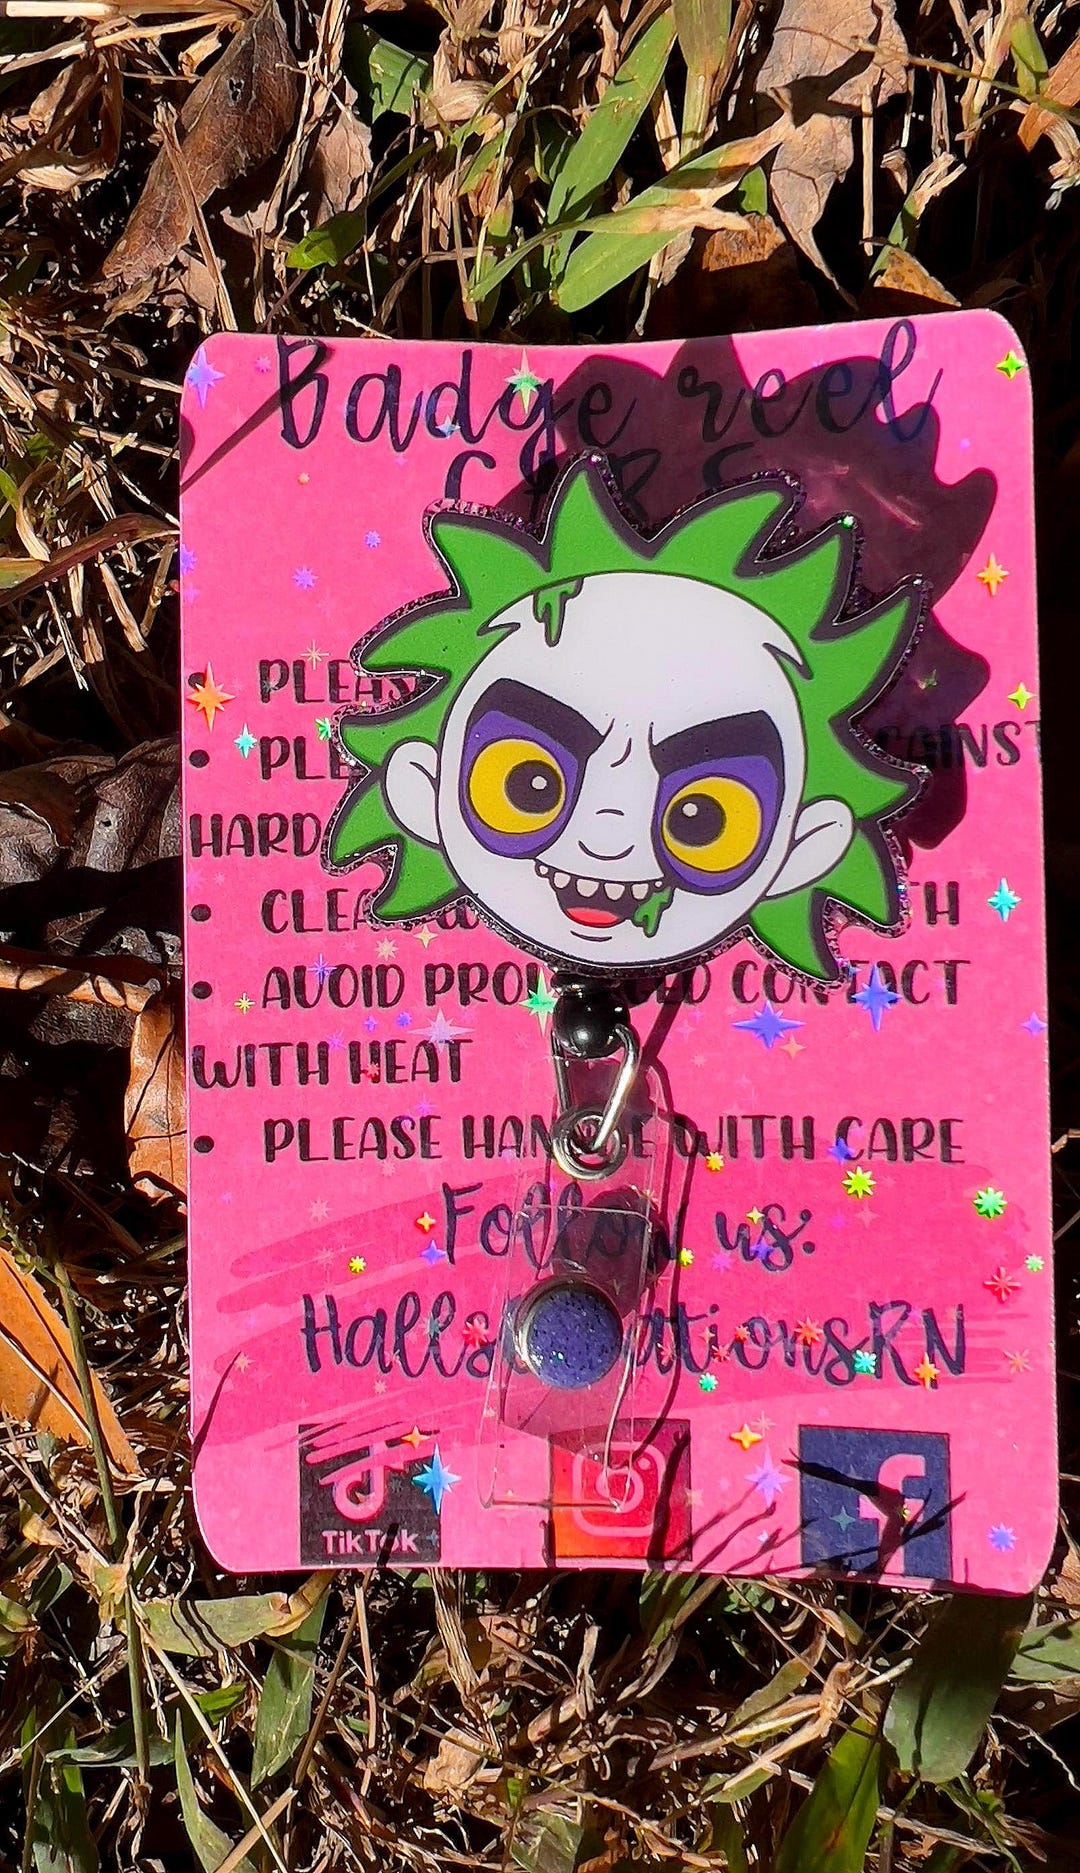 Badge reel
PLEAS
PLE
GAINST
HARD
CLEA
TH
AVOID PROLONGED CONTACT
WITH HEAT
PLEASE HANDLE WITH CARE
Follow us:
HallsCreationsRN
TikTok